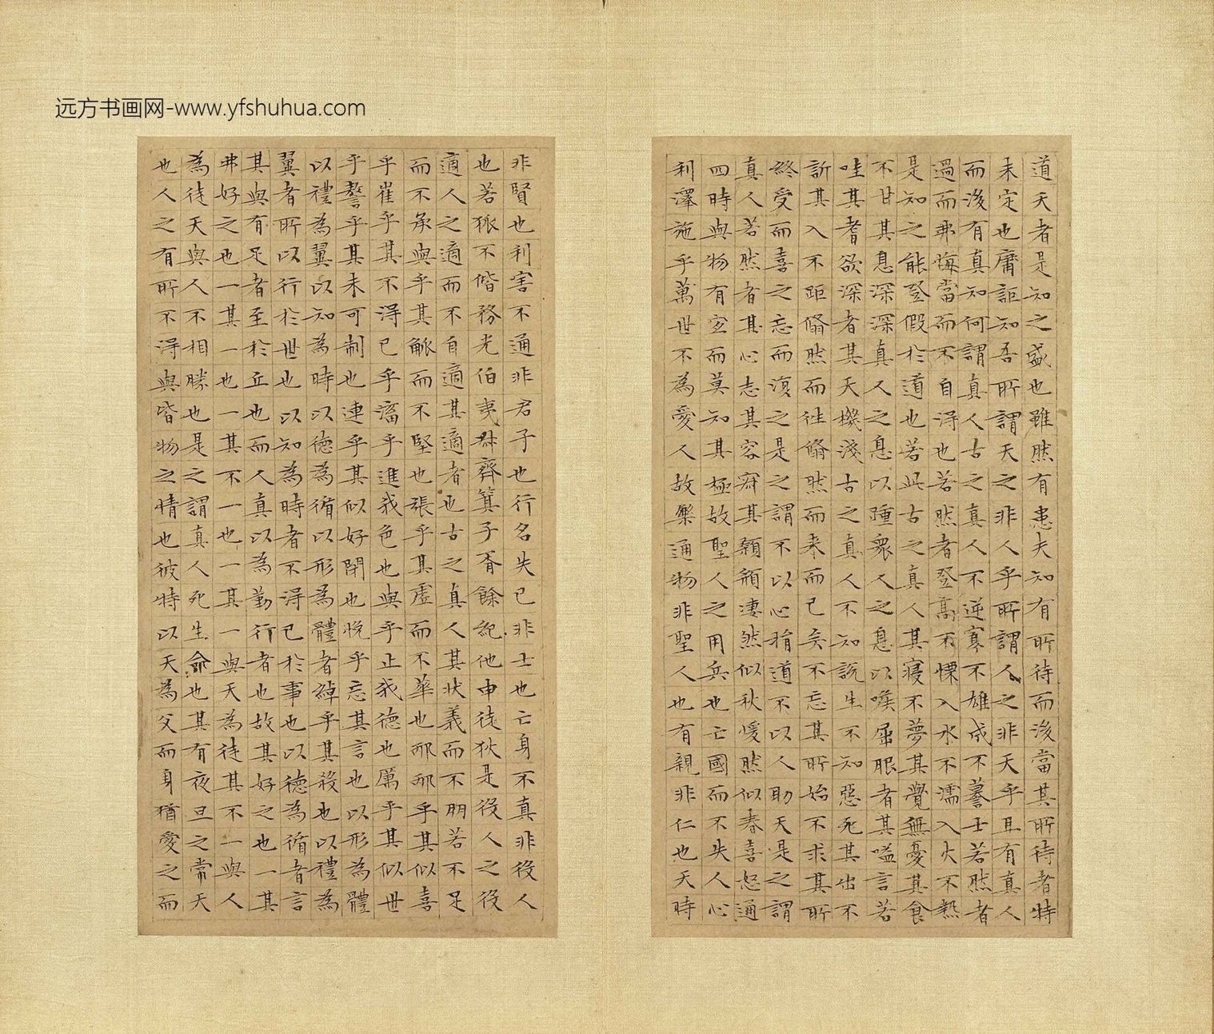 远方书画网-www.yfshuhua.com
道天者是知之盛也雖然有患夫知有所待而後當其所待者特
未定也庸詎知吾所謂天之非人乎所謂人之非天乎且有真人
而後有真知何謂真人古之真人不逆寡不雄成不謩士若然者
過而弗悔當而不自得也若然者登高不慄入水不濡入火不熱
是知之能登假於道也若此古之真人其寢不夢其覺無憂其食
不甘其息深深真人之息以踵眾人之息以喉屈服者其嗌言若
哇其耆欲深者其天機淺古之真人不知說生不知惡死其出不
訢其入不距翛然而往翛然而來而已矣不忘其所始不求其所
終受而喜之忘而復之是之謂不以心捐道不以人助天是之謂
真人若然者其心志其容寂其顙頯淒然似秋煖然似春喜怒通
四時與物有宜而莫知其極故聖人之用兵也亡國而不失人心
利澤施乎萬世不為愛人故樂通物非聖人也有親非仁也天時
非賢也利害不通非君子也行名失已非士也亡身不真非役人
也若狐不偕務光伯夷叔齊箕子胥餘紀他申徒狄是役人之役
適人之適而不自適其適者也古之真人其狀義而不朋若不足
而不承與乎其觚而不堅也張乎其虛而不華也邴邴乎其似喜
乎崔乎其不得已乎滀乎進我色也與乎止我德也厲乎其似世
乎謷乎其未可制也連乎其似好閉也悗乎忘其言也以形為體
以禮為翼以知為時以德為循以形為體者綽乎其殺也以禮為
翼者所以行於世也以知為時者不得已於事也以德為循者言
其與有足者至於丘也而人真以為勤行者也故其好之也一其
弗好之也一其一也一其不一也一其一與天為徒其不一與人
為徒天與人不相勝也是之謂真人死生命也其有夜旦之常天
也人之有所不得與皆物之情也彼特以天為父而身猶愛之而